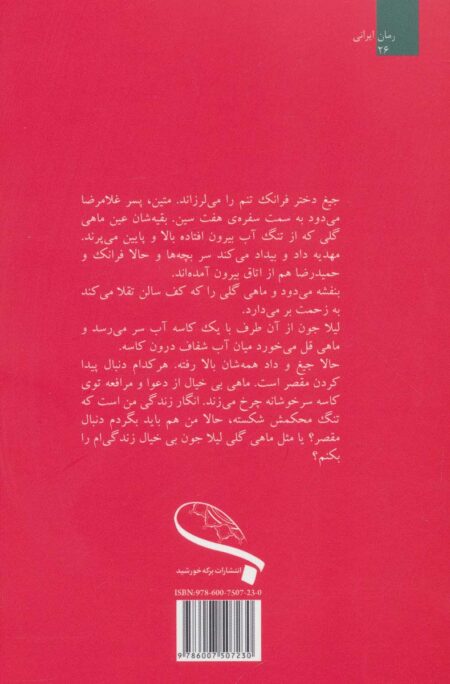 رمان ایرانی
۲۶
جیغ دختر فرانک تنم را می‌لرزاند. متین، پسر غلامرضا
می‌دود به سمت سفره‌ی هفت سین. بقیه‌شان عین ماهی
گلی که از تنگ آب بیرون افتاده بالا و پایین می‌پرند.
مهدیه داد و بیداد می‌کند سر بچه‌ها و حالا فرانک و
حمیدرضا هم از اتاق بیرون آمده‌اند.
بنفشه می‌دود و ماهی گلی را که کف سالن تقلا می‌کند
به زحمت بر می‌دارد.
لیلا جون از آن طرف با یک کاسه آب سر می‌رسد و
ماهی قل می‌خورد میان آب شفاف درون کاسه.
حالا جیغ و داد همه‌شان بالا رفته. هرکدام دنبال پیدا
کردن مقصر است. ماهی بی خیال از دعوا و مرافعه توی
کاسه سرخوشانه چرخ می‌زند. انگار زندگی من است که
تنگ محکمش شکسته، حالا من هم باید بگردم دنبال
مقصر؟ یا مثل ماهی گلی لیلا جون بی خیال زندگی‌ام را
بکنم؟
انتشارات برکه خورشید
ISBN:978-600-7507-23-0
9 786007 507230